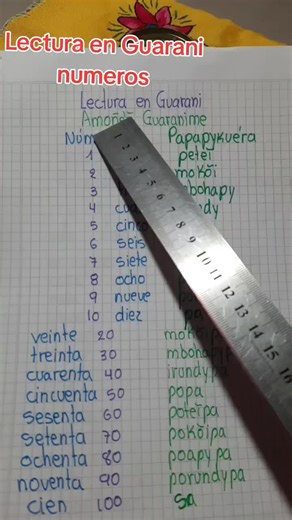 Lectura en Guarani
numeros
Lectura en Guarani
Guaranime
Núm Papapykuéra
1 peteĩ
2 mokõi
3 bohapy
4 cua ndy
5 cinco
6 seis
7 siete
8 ocho
9 nueve
10 diez
veinte 20 mokõipa
treinta 30 mbohapy
cuarenta 40 irundypa
cincuenta 50 popa
sesenta 60 poteĩpa
setenta 70 pokõipa
ochenta 80 poapypa
noventa 90 porundypa
cien 100 sa
1 2 3 4 5 6 7 8 9 10 11 12 13 14 15 16